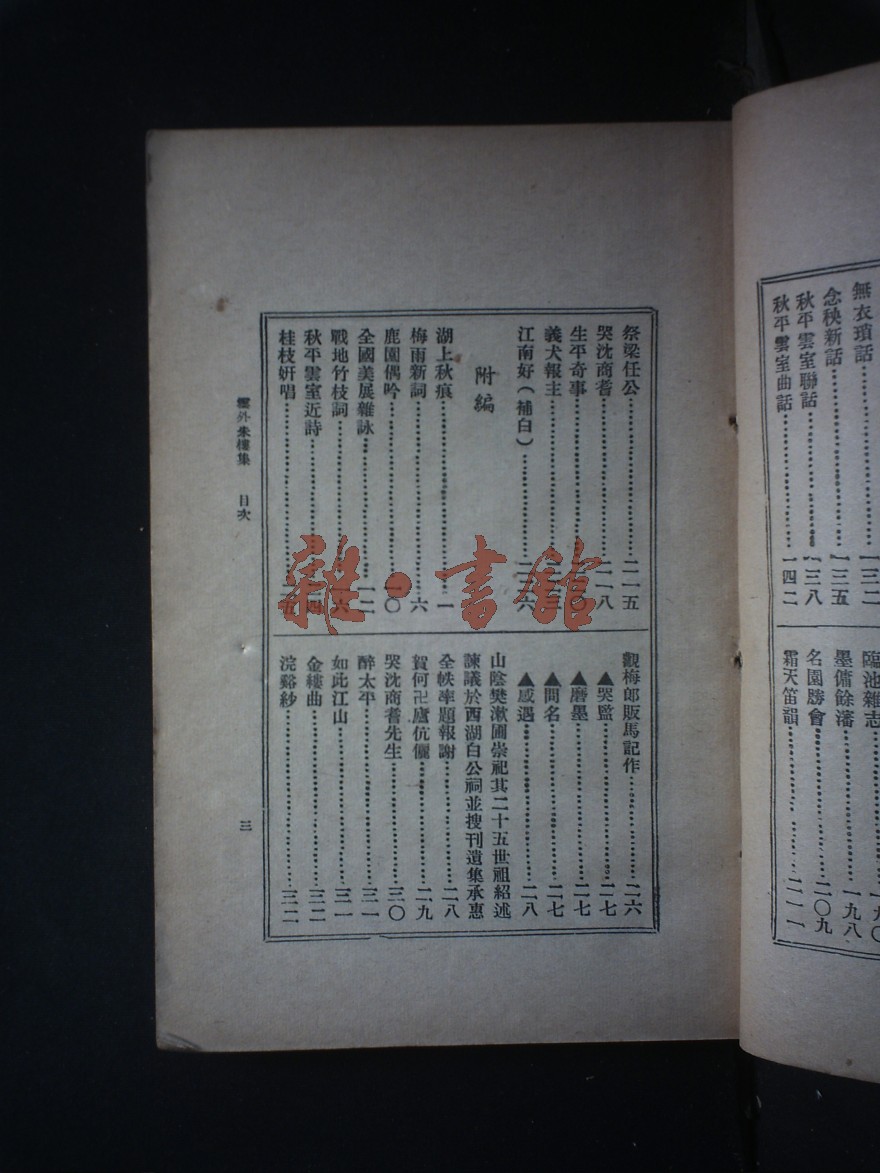 無衣瑣話……一三二
念秧新話……一三五
秋平雲室聯話……一三八
秋平雲室曲話……一四二
臨池雜志……一九〇
墨傭餘瀋……一九八
名園勝會……二〇九
霜天笛韻……二一一
祭梁任公……二一五
哭沈商耆……二一八
生平奇事……二二〇
義犬報主……二二三
江南好（補白）……二二六
附編
湖上秋痕……一
梅雨新詞……六
鹿園偶吟……一〇
全國美展雜詠……一二
戰地竹枝詞……一六
秋平雲室近詩……二四
桂枝妍唱……二五
觀梅郎販馬記作……二六
▲哭監……二七
▲磨墨……二七
▲問名……二七
▲感遇……二八
山陰樊漱圃崇祀其二十五世祖紹述
諫議於西湖白公祠並搜刊遺集承惠
全帙率題報謝……二八
賀何卍廬伉儷……二九
哭沈商耆先生……三〇
醉太平……三一
如此江山……三一
金縷曲……三二
浣谿紗……三二
雲外朱樓集　目次
三
雜·書館